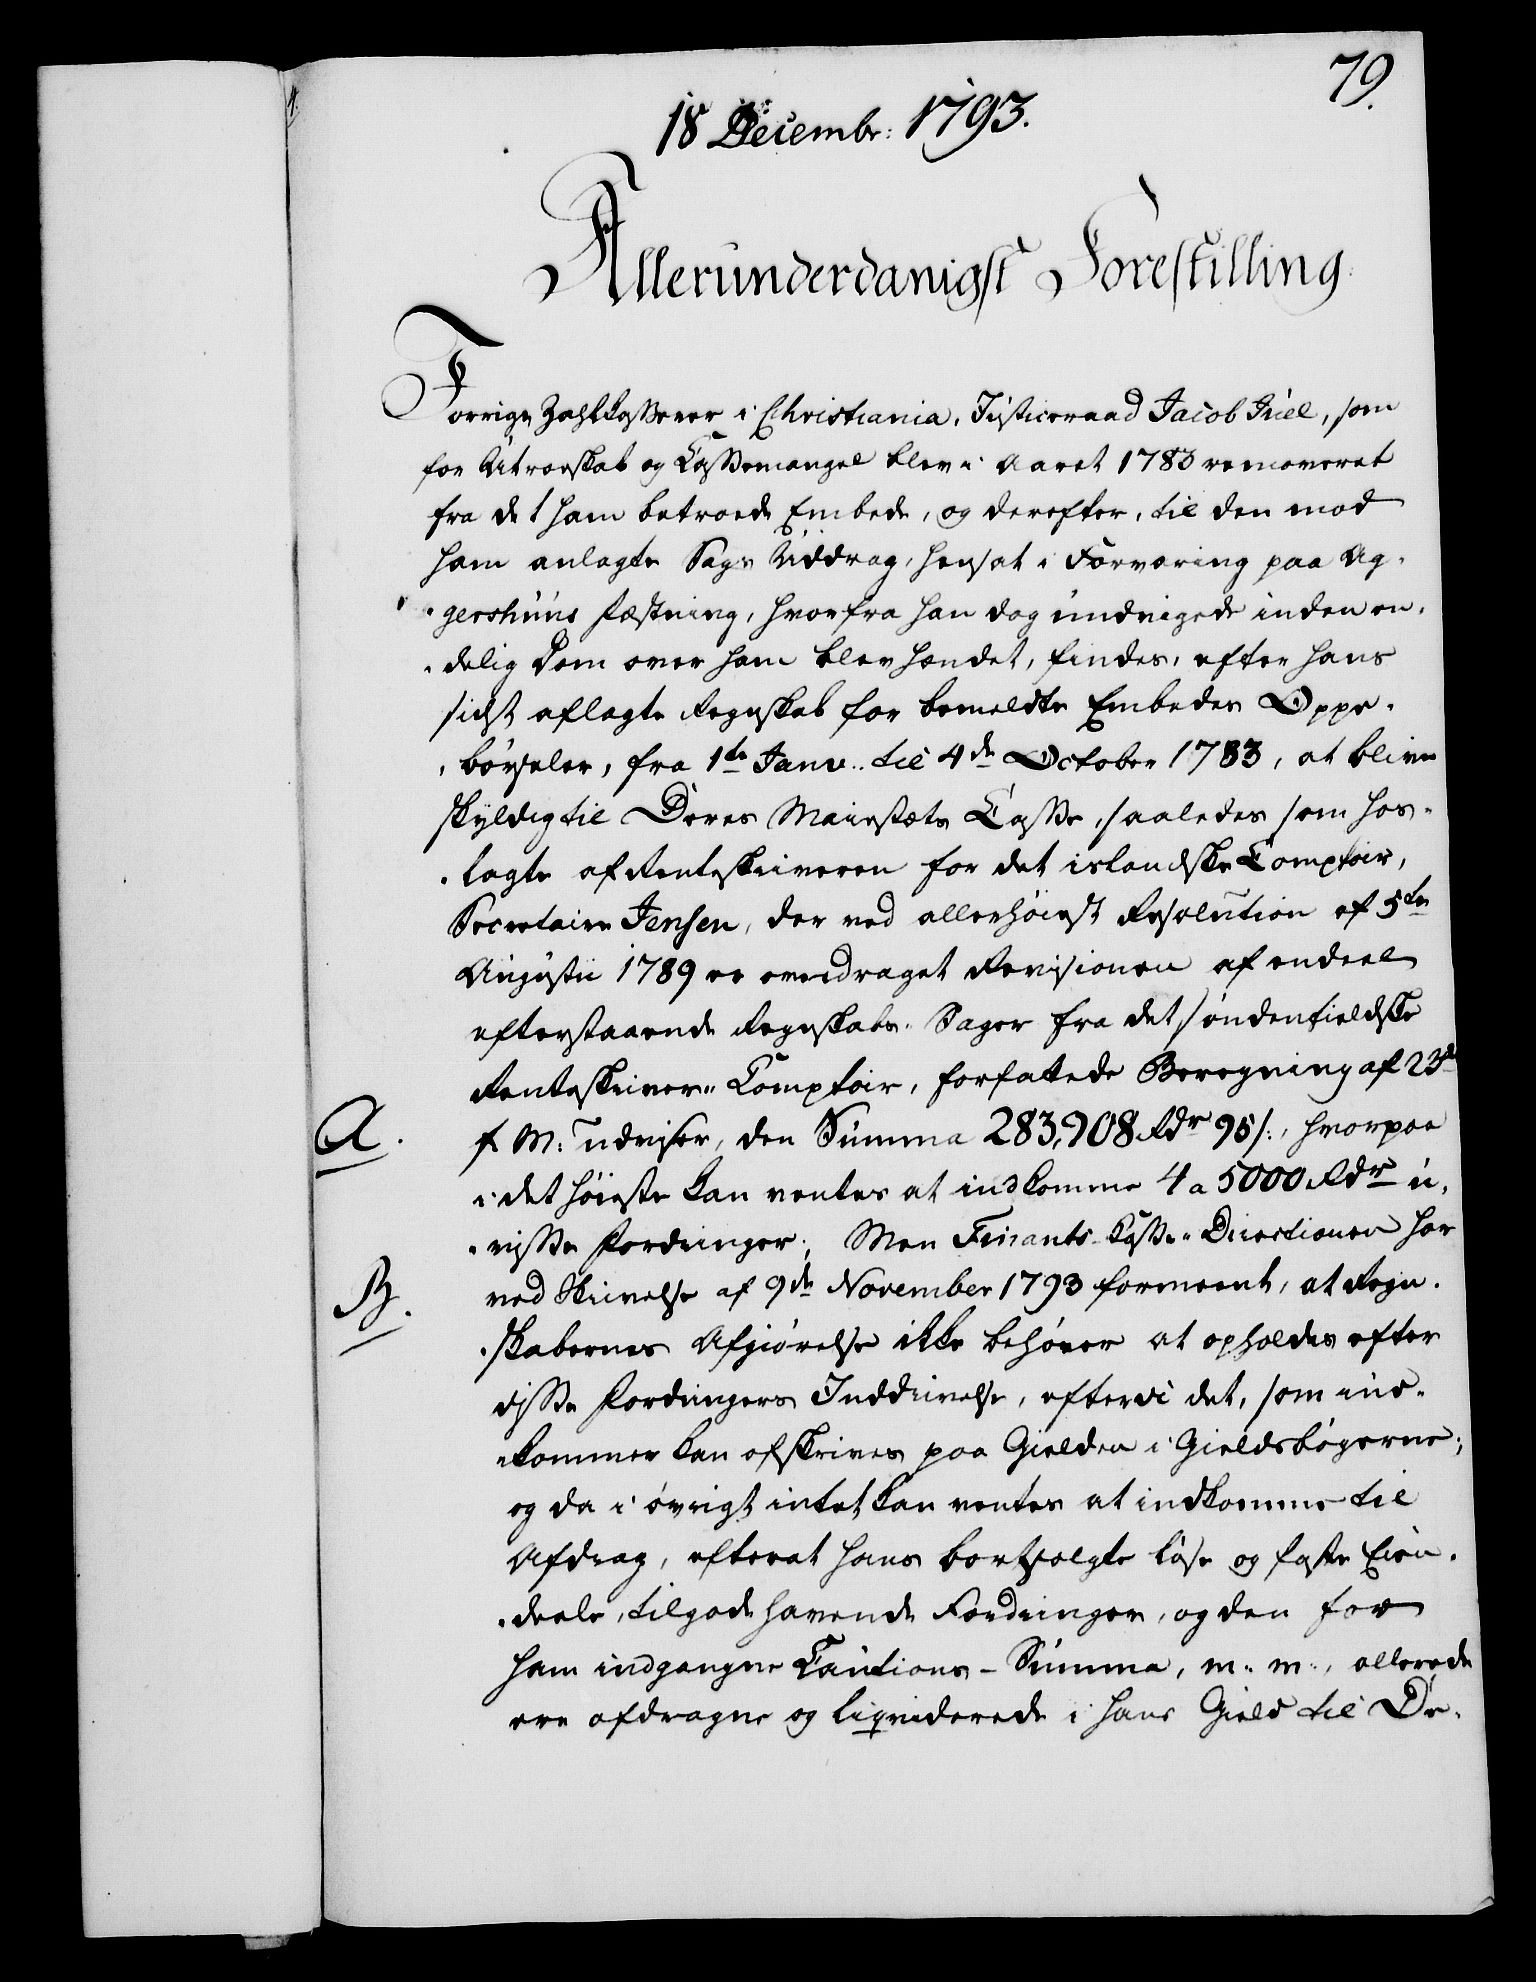 79.
18 Decembr: 1793.
Allerunderdanigst Forestilling.
Forrige Zahlkasserer i Christiania, Justiceraad Jacob Juel, som
for Utroeskab og Cassemangel blev i Aaret 1783 removeret
fra det ham betroede Embede, og derefter, til den mod
ham anlagte Sags Uddrag, hensat i Forvaring paa Ag-
gershuus Fæstning, hvorfra han dog undvigede inden en-
delig Dom over ham blev hændet, findes, efter hans
sidst aflagte Regnskab for bemeldte Embedes Oppe-
børseler, fra 1te Janv: til 4de October 1783, at blive
skyldig til Deres Maiestæts Casse, saaledes som hos-
lagte af Renteskriveren for det islandske Comptoir,
Secretaire Jensen, der ved allerhøiest Resolution af 5te
Augusti 1789 er overdraget Revisionen af endeel
efterstaaende Regnskabs-Sager fra det søndenfieldske
Renteskriver-Comptoir, forfattede Beregning af 23de
A.
f. M: udviser, den Summa 283,908 Rdr 95 s:, hvorpaa
i det høieste kan ventes at indkomme 4 a 5000 Rdr u-
visse Fordringer; Men Finants-Casse-Directionen har
B.
ved Skrivelse af 9de November 1793 formeent, at Regn-
skabernes Afgiørelse ikke behøver at opholdes efter
disse Fordringers Inddrivelse, efterdi det, som ind-
kommer kan afskrives paa Gielden i Gieldsbøgerne;
og da i øvrigt intet kan ventes at indkomme til
Afdrag, efterat hans bortsolgte løse og faste Eien-
deele, tilgodehavende Fordringer, og den for
ham indgangne Cautions-Summa, m: m:, allerede
ere afdragne og liqviderede i hans Gield til De-